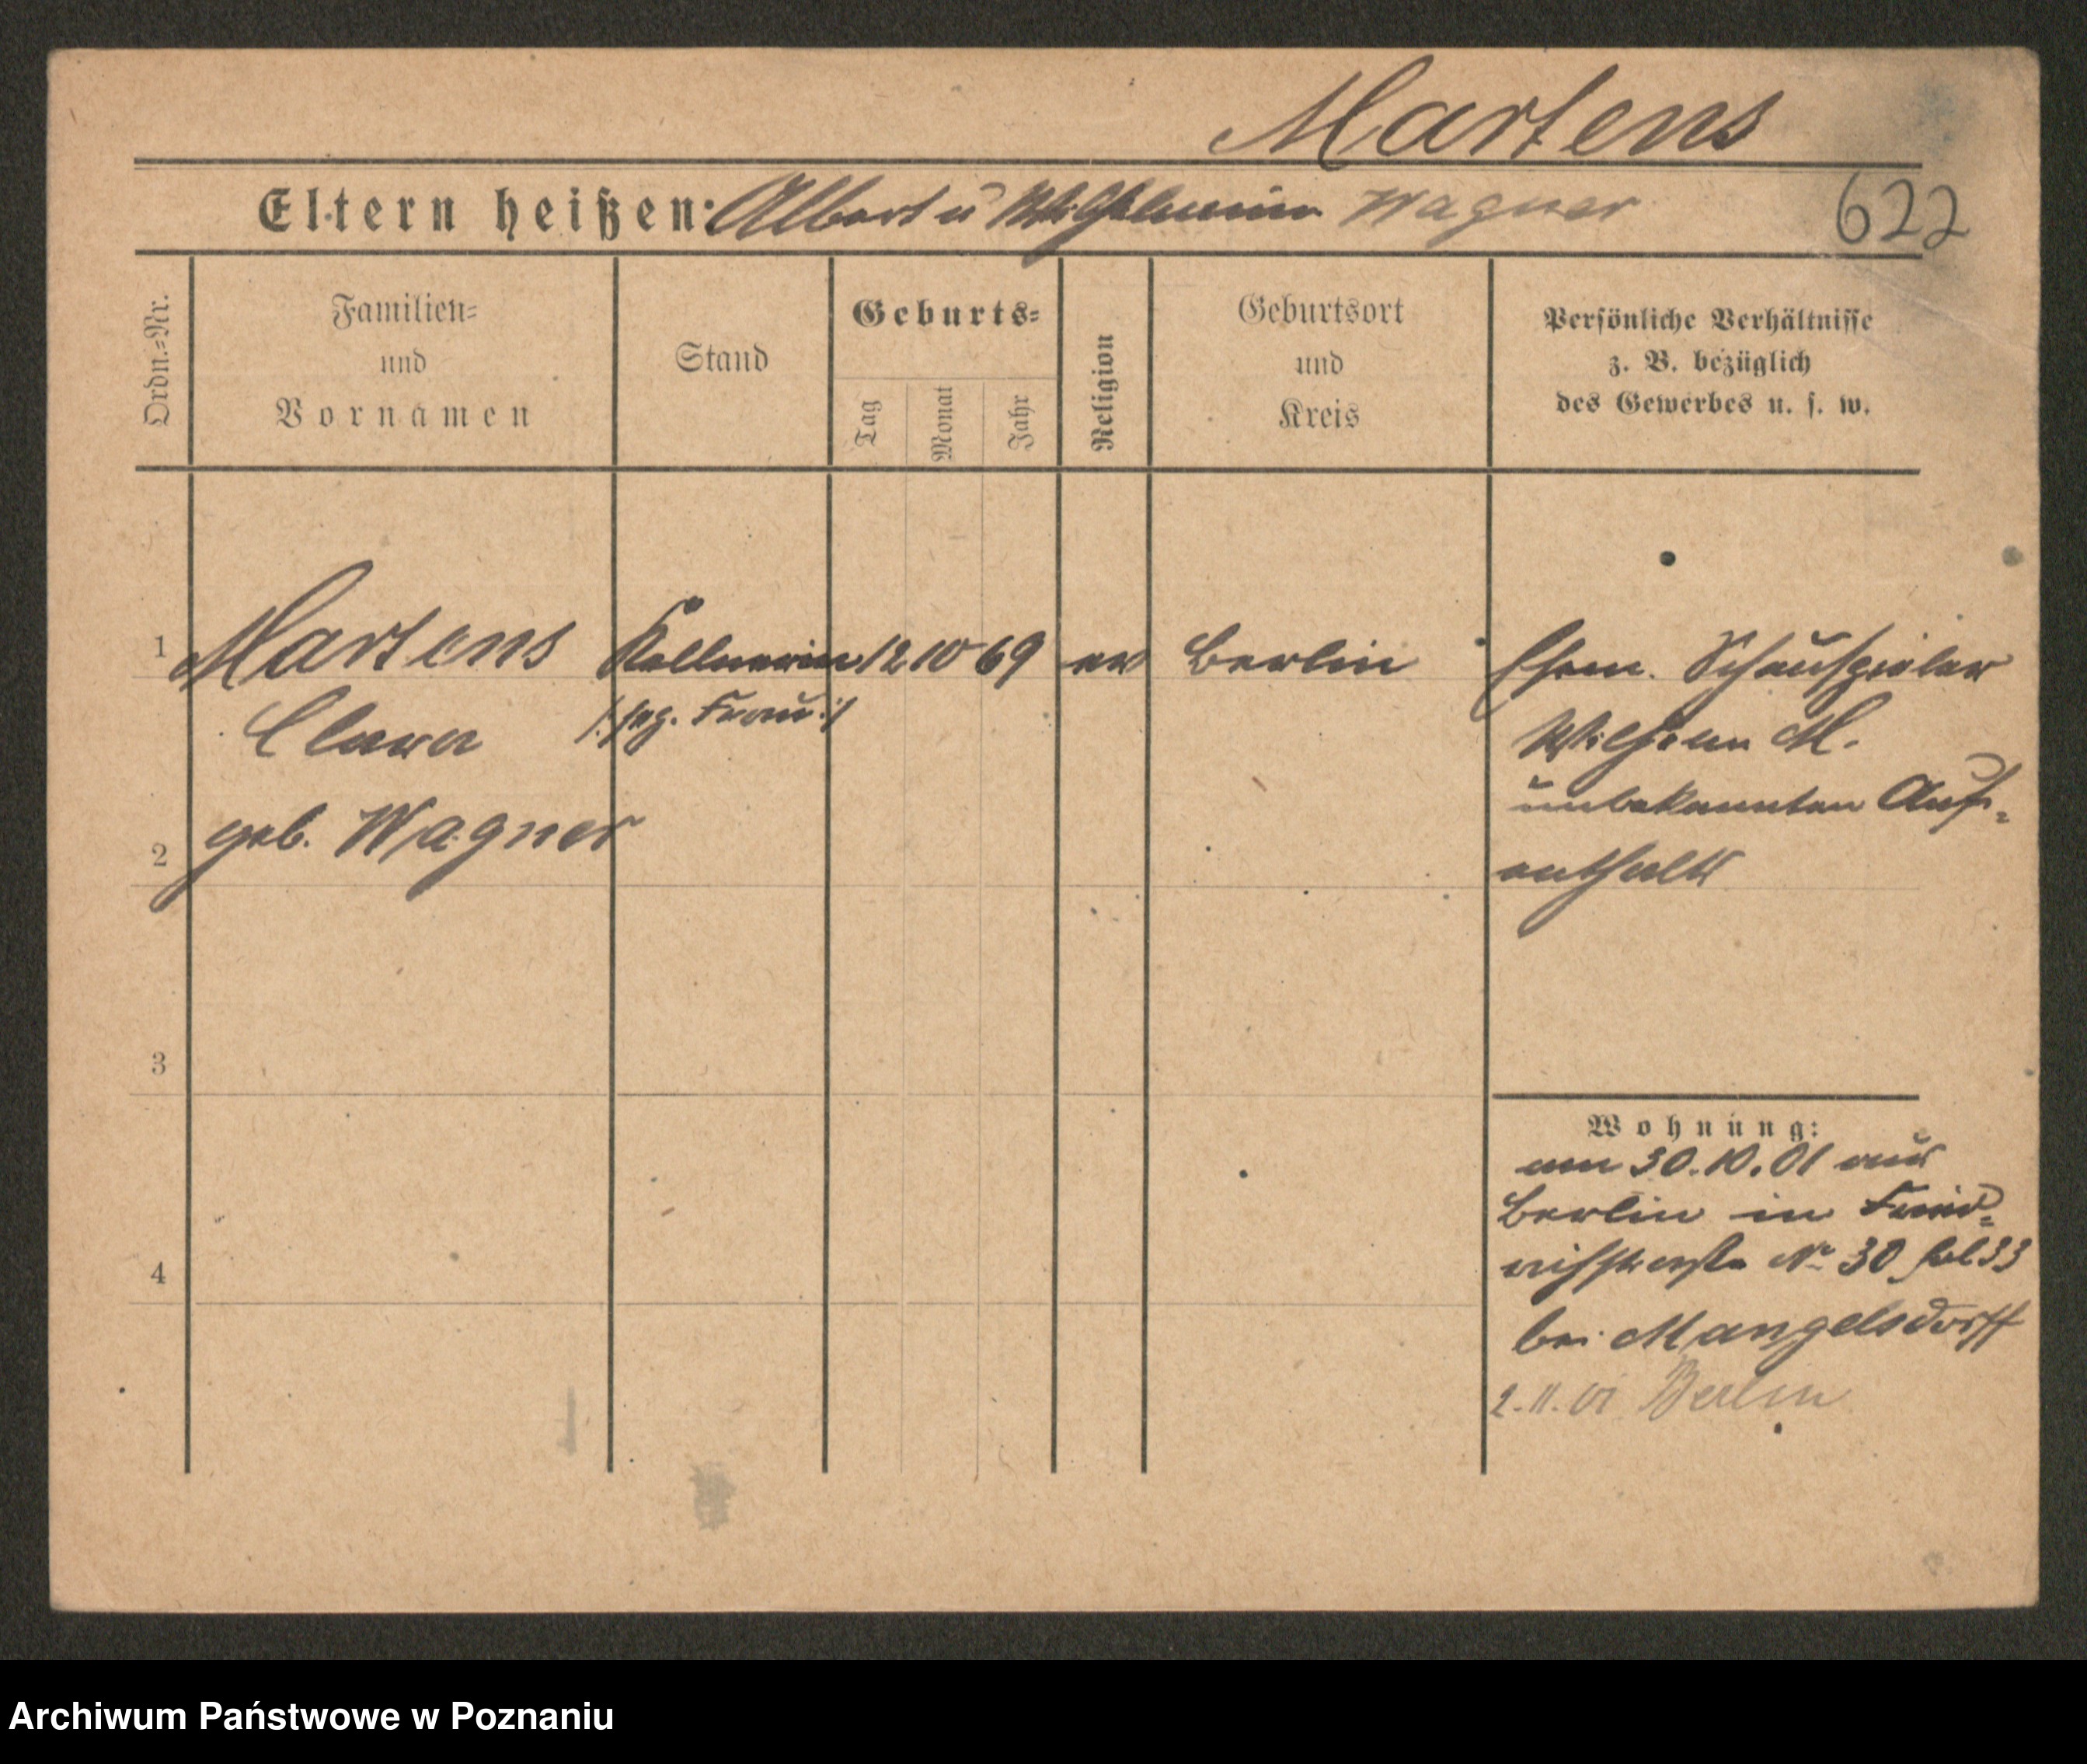 Martens
Eltern heißen: Albert u Wilhelmine Wagner
622
Ordn.=Nr.
Familien=
und
Vornamen
Stand
Geburts=
Tag
Monat
Jahr
Religion
Geburtsort
und
Kreis
Persönliche Verhältnisse
z. B. bezüglich
des Gewerbes u. s. w.
1 Martens Kellnerin 12 10 69 ev Berlin Ehem. Schauspieler
Clara /: sep. Frau :/ Wilhelm M.
unbekannten Auf=
2 geb. Wagner enthalts
3
Wohnung:
am 30.10.01 aus
Berlin in Fried=
4 richstraße No 30
bei Mangelsdorff
2.11.01 Berlin
Archiwum Państwowe w Poznaniu